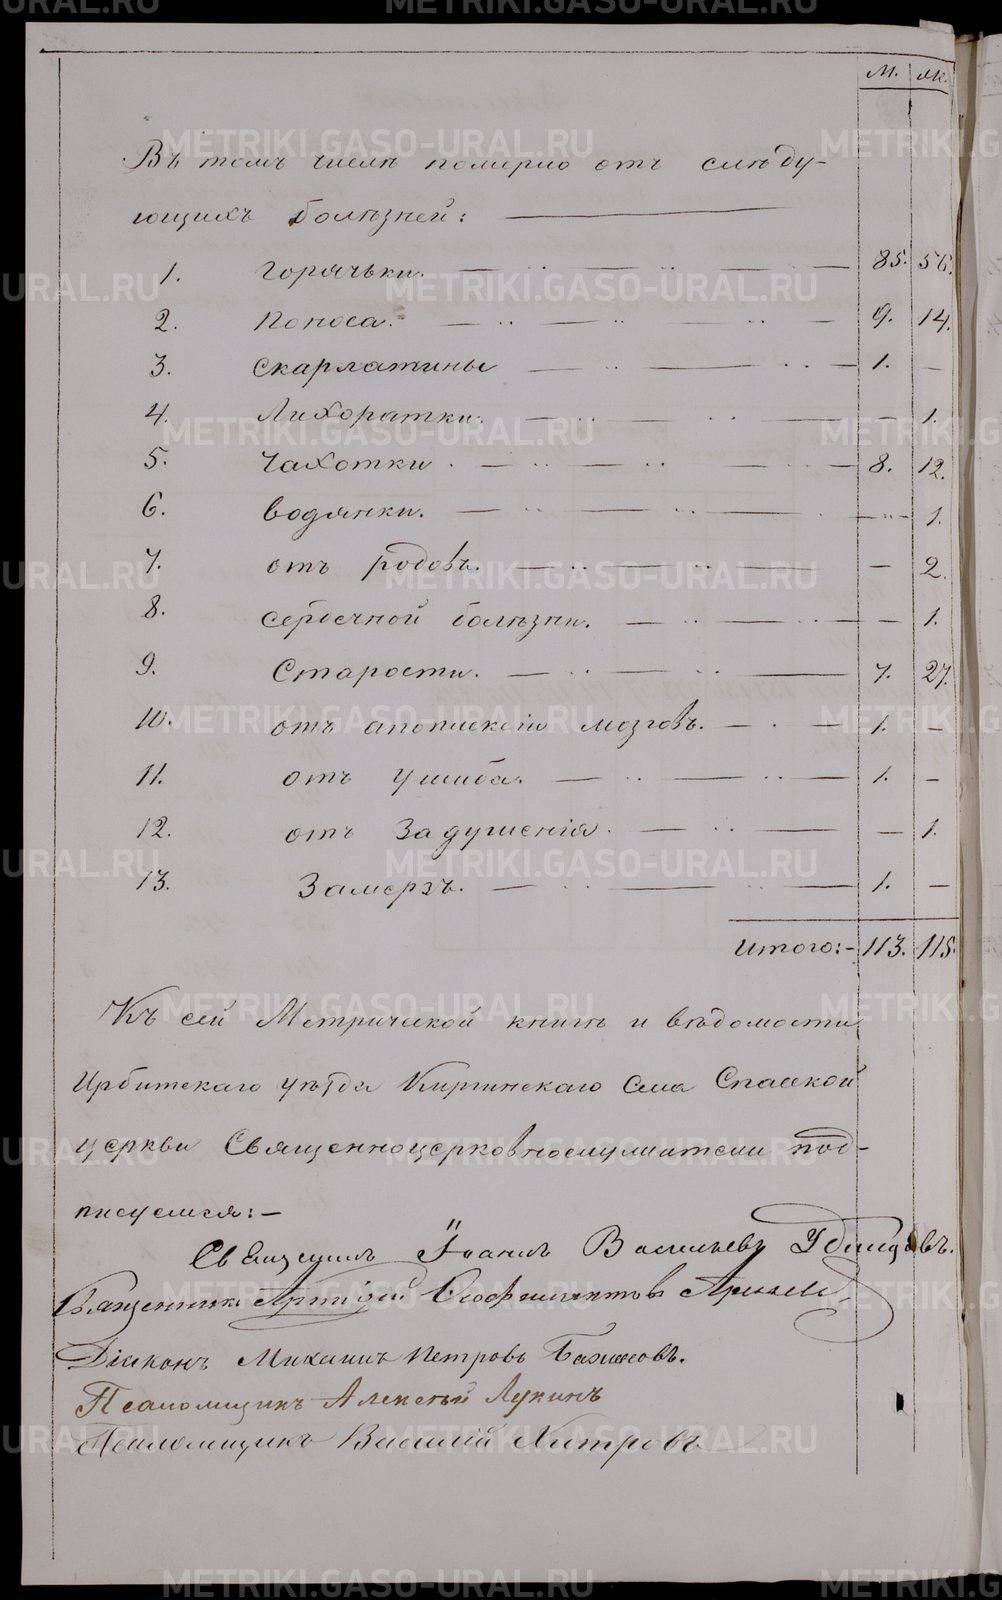 М. Ж.
Въ томъ числѣ померло отъ слѣду-
ющихъ болѣзней:
1. Горячьки. 85. 56.
2. Поноса. 9. 14.
3. Скарлатины 1. —
4. Лихоратки. — 1.
5. Чахотки. 8. 12.
6. Водянки. — 1.
7. отъ родовъ. — 2.
8. сердечной болѣзни. — 1.
9. Старости. 7. 27.
10. отъ апоплексіи мозговъ. 1. —
11. отъ ушиба. 1. —
12. отъ Задушенія. — 1.
13. Замерзъ. 1. —
Итого:- 113. 115.
Къ сей Метрической книгѣ и вѣдомости
Ирбитскаго уѣзда Киргинскаго Села Спасской
церкви Священноцерковнослужители под-
писуемся:-
Священникъ Іоаннъ Васильевъ Удинцовъ.
Священникъ
Діаконъ Михаилъ Петровъ Бажановъ.
Псаломщикъ Алексѣй Лукинъ
Псаломщикъ Василій Хитровъ
METRIKI.GASO-URAL.RU